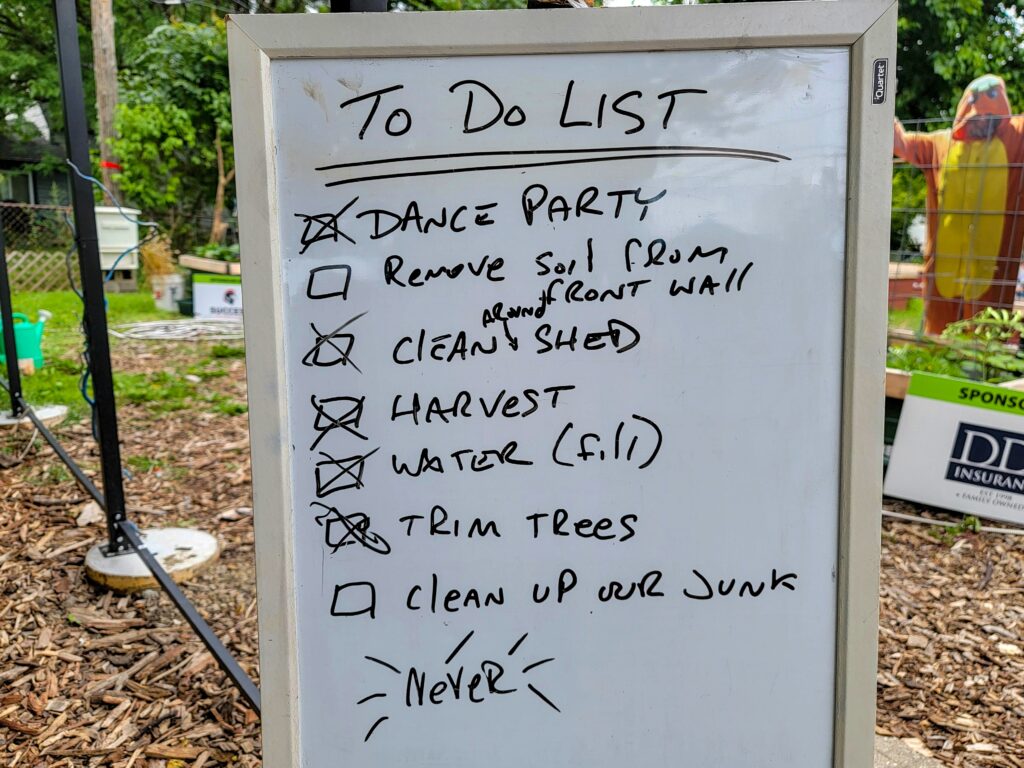 Quartet
TO DO LIST
DANCE PARTY
Remove Soil from
FRONT WAll
AROUND
CLEAN SHED
HARVEST
WATER (fill)
TRIM TREES
CLEAN UP OUR JUNK
NEVER
SPONSO
DD
INSURAN
EST 1998
FAMILY OWNED